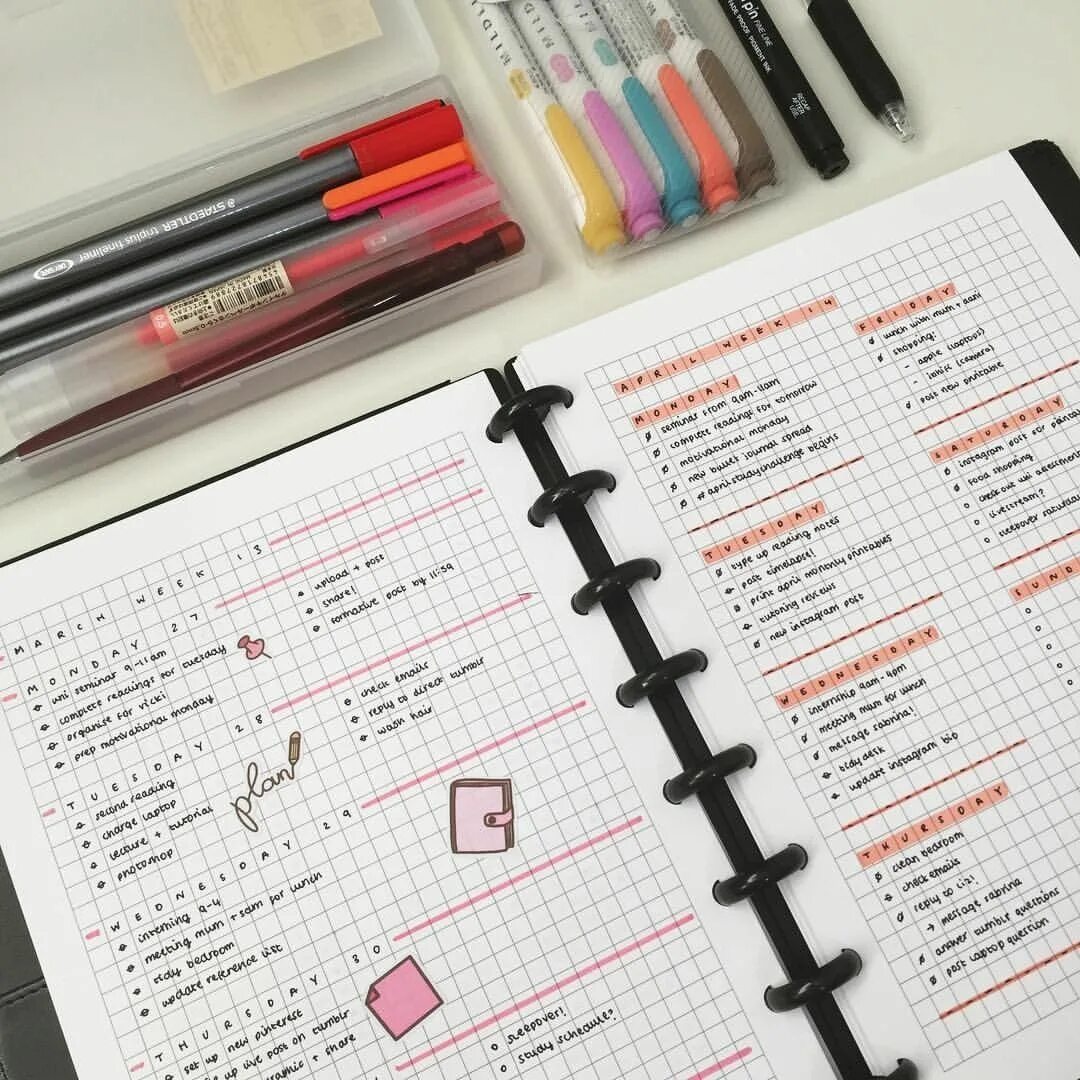 STAEDTLER triplus fineliner
MILD
MILD
MILD
FADE PROOF PIGMENT INK
pin FINE LINE
RECAP
AFTER
USE
MARCH WEEK 13
MONDAY 27
uni seminar 9-11am
complete readings for tuesday
organise for vicki
prep motivational monday
TUESDAY 28
second reading
charge laptop
lecture + tutorial
photoshop
WEDNESDAY 29
interning 9-4
meeting mum + sam for lunch
tidy bedroom
update reference list
THURSDAY 30
set up new pinterest
up live post on tumblr
+ share
plan
upload + post
share!
formative post by 11:59
check emails
reply to direct tumblr
wash hair
sleepover!
study schedule?
APRIL WEEK 14
MONDAY
seminar from 9am-11am
complete readings for tomorrow
motivational monday
new bullet journal spread
#aprilstudychallenge begins
TUESDAY
type up reading notes
post timelapse!
print april monthly printables
tutoring reviews
new instagram post
WEDNESDAY
internship 9am-4pm
meeting mum for lunch
message sabrina!
tidy desk
update instagram bio
THURSDAY
clean bedroom
check emails
reply to liz!
→ message sabrina
answer tumblr questions
post laptop question
FRIDAY
lunch with mum + dani
shopping:
- apple (laptops)
- (camera)
post new printable
SATURDAY
instagram post for
food shopping
check out uni
livestream?
sleepover saturda
SUND